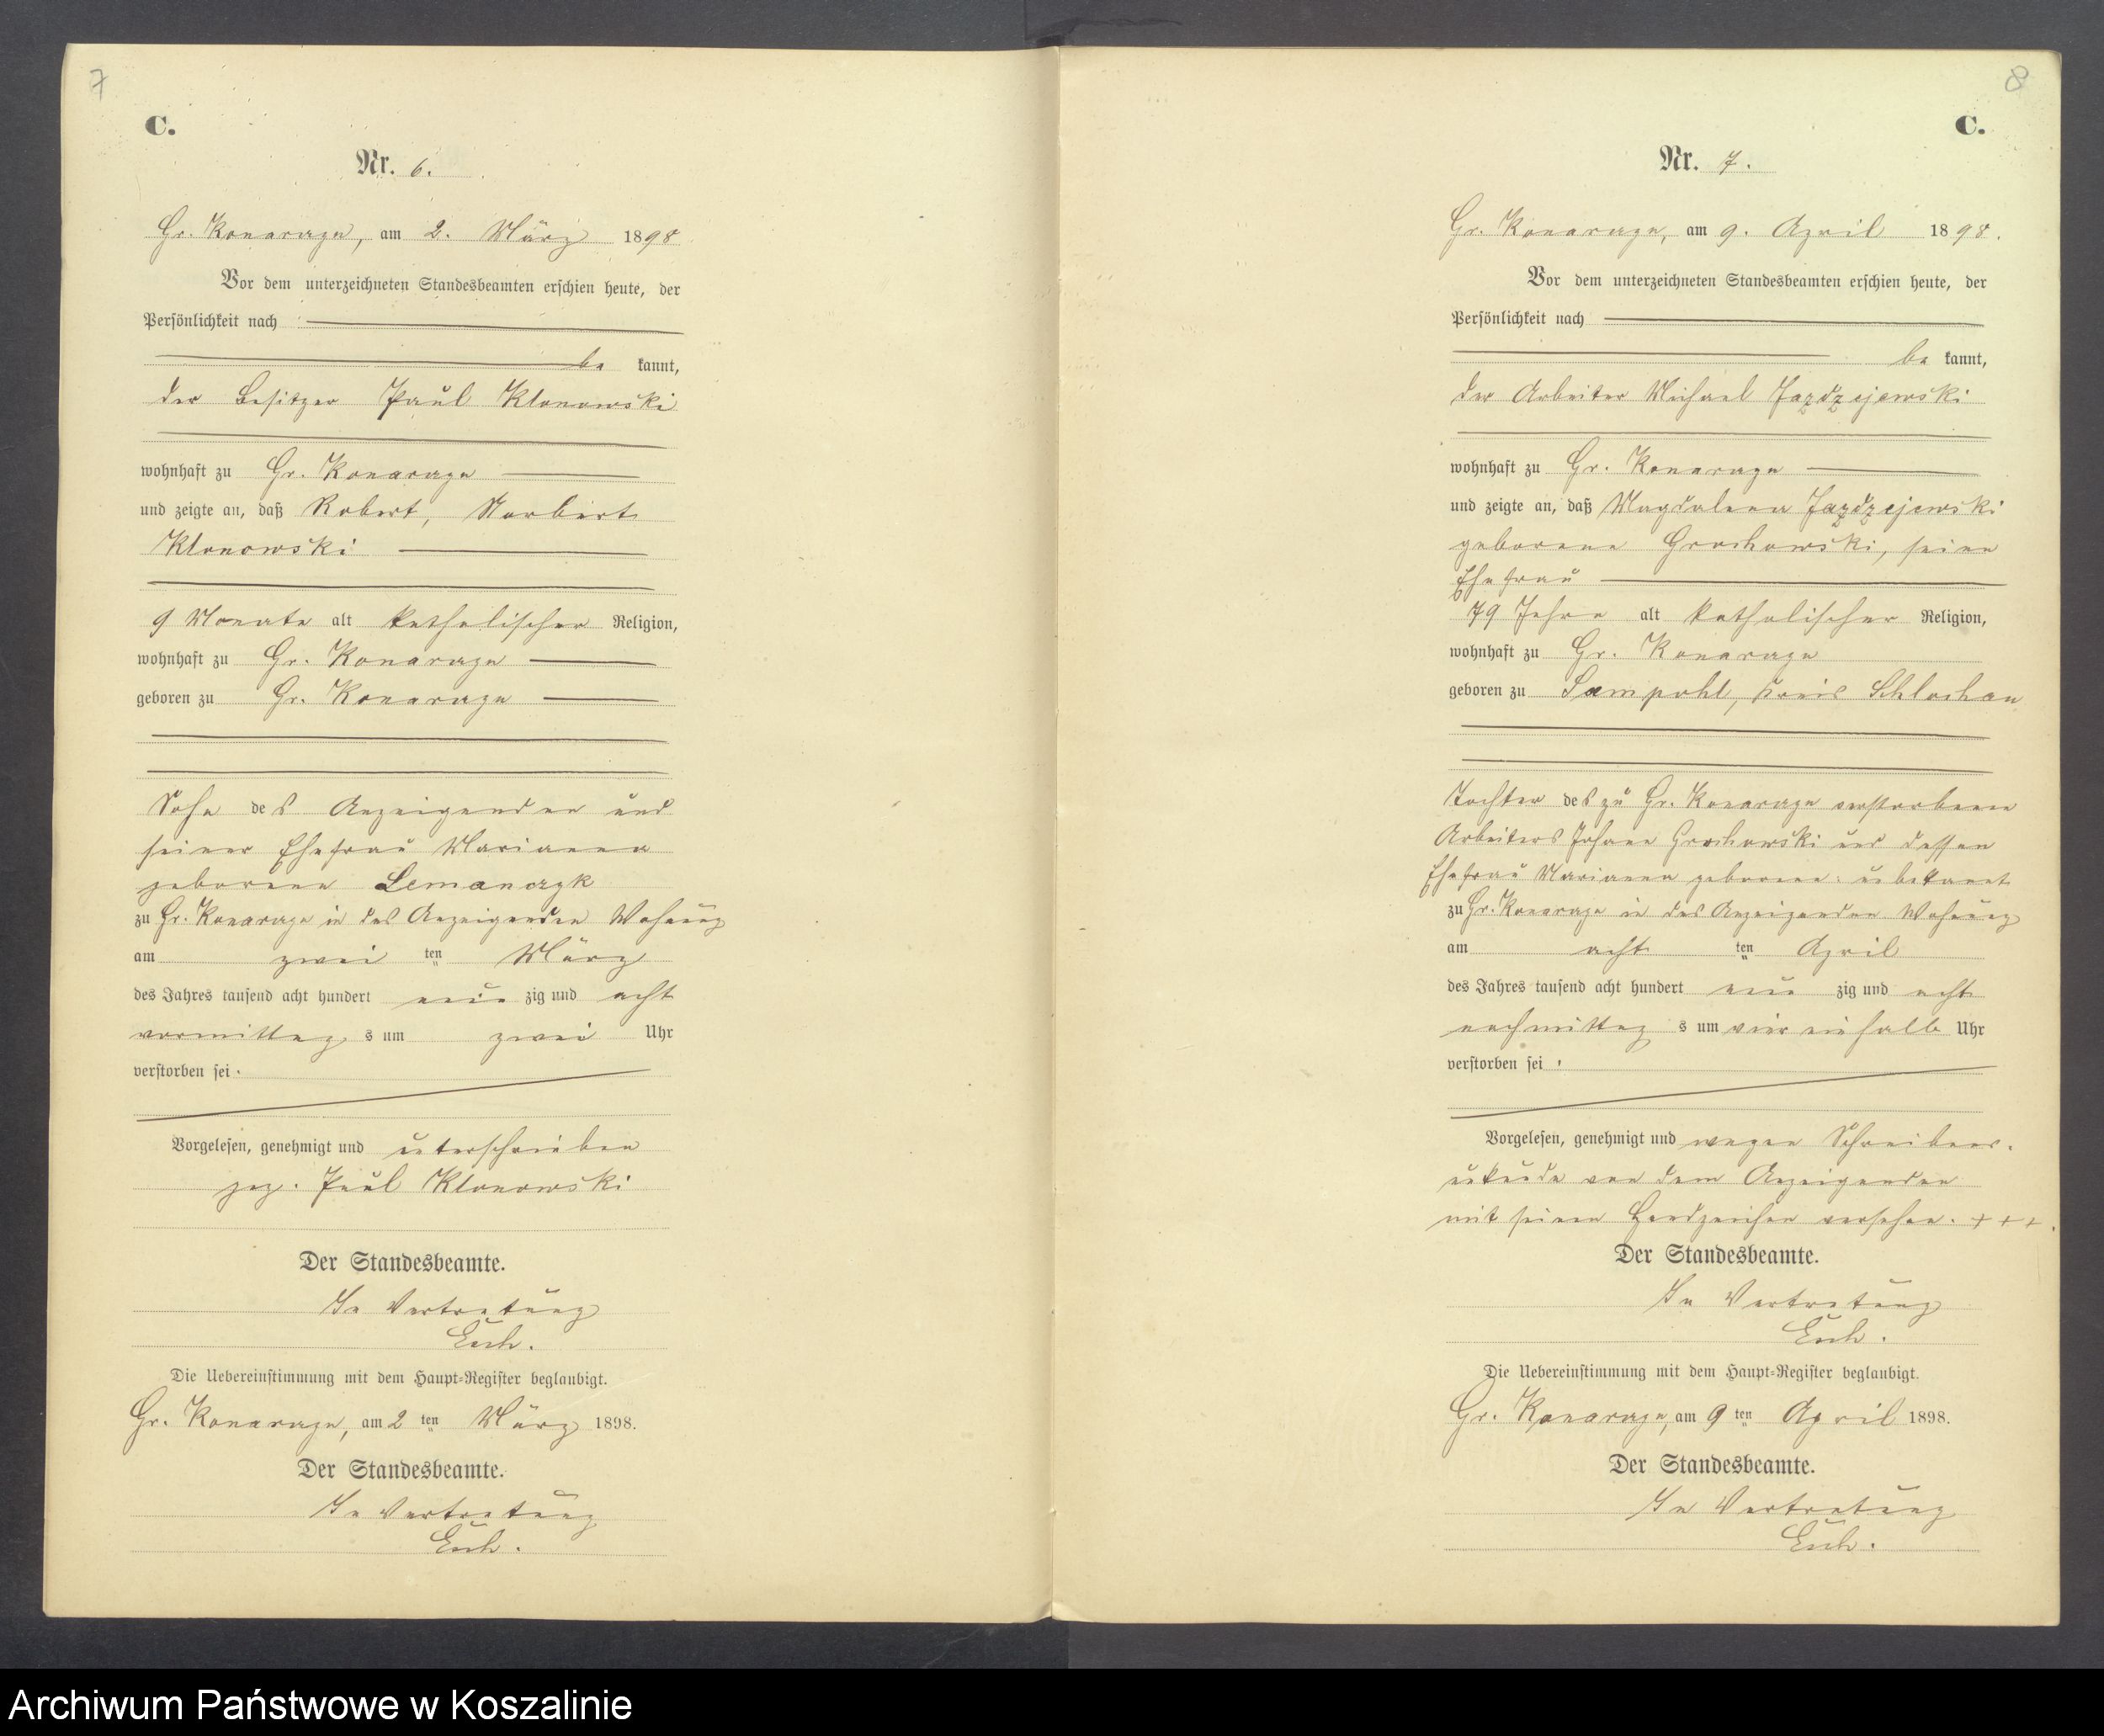 7
C.
Nr. 6.
Gr. Konarczyn, am 2. März 1898
Vor dem unterzeichneten Standesbeamten erschien heute, der
Persönlichkeit nach
be kannt,
der Besitzer Paul Klonowski
wohnhaft zu Gr. Konarczyn
und zeigte an, daß Robert, Norbert
Klonowski
9 Monate alt katholischer Religion,
wohnhaft zu Gr. Konarczyn
geboren zu Gr. Konarczyn
Sohn des Anzeigenden und
seiner Ehefrau Marianna
geborene Lemanczyk
zu Gr. Konarczyn in des Anzeigenden Wohnung
am zwei ten März
des Jahres tausend acht hundert neun zig und acht
vormittag s um zwei Uhr
verstorben sei.
Vorgelesen, genehmigt und unterschrieben
gez. Paul Klonowski
Der Standesbeamte.
In Vertretung
Die Uebereinstimmung mit dem Haupt-Register beglaubigt.
Gr. Konarczyn, am 2 ten März 1898.
Der Standesbeamte.
In Vertretung
8
C.
Nr. 7.
Gr. Konarczyn, am 9. April 1898.
Vor dem unterzeichneten Standesbeamten erschien heute, der
Persönlichkeit nach
be kannt,
der Arbeiter Michael Jazdzejewski
wohnhaft zu Gr. Konarczyn
und zeigte an, daß Magdalena Jazdzejewski
geborene Grochowski, seine
Ehefrau
79 Jahre alt katholischer Religion,
wohnhaft zu Gr. Konarczyn
geboren zu Sampohl, Kreis Schlochau
Tochter des zu Gr. Konarczyn verstorbenen
Arbeiters Johann Grochowski und dessen
Ehefrau Marianna geborene: unbekannt
zu Gr. Konarczyn in des Anzeigenden Wohnung
am acht ten April
des Jahres tausend acht hundert neun zig und acht
nachmittag s um vier einhalb Uhr
verstorben sei.
Vorgelesen, genehmigt und wegen Schreibens-
unkunde von dem Anzeigenden
mit seinen Handzeichen versehen. +++.
Der Standesbeamte.
In Vertretung
Die Uebereinstimmung mit dem Haupt-Register beglaubigt.
Gr. Konarczyn, am 9 ten April 1898.
Der Standesbeamte.
In Vertretung
Archiwum Państwowe w Koszalinie